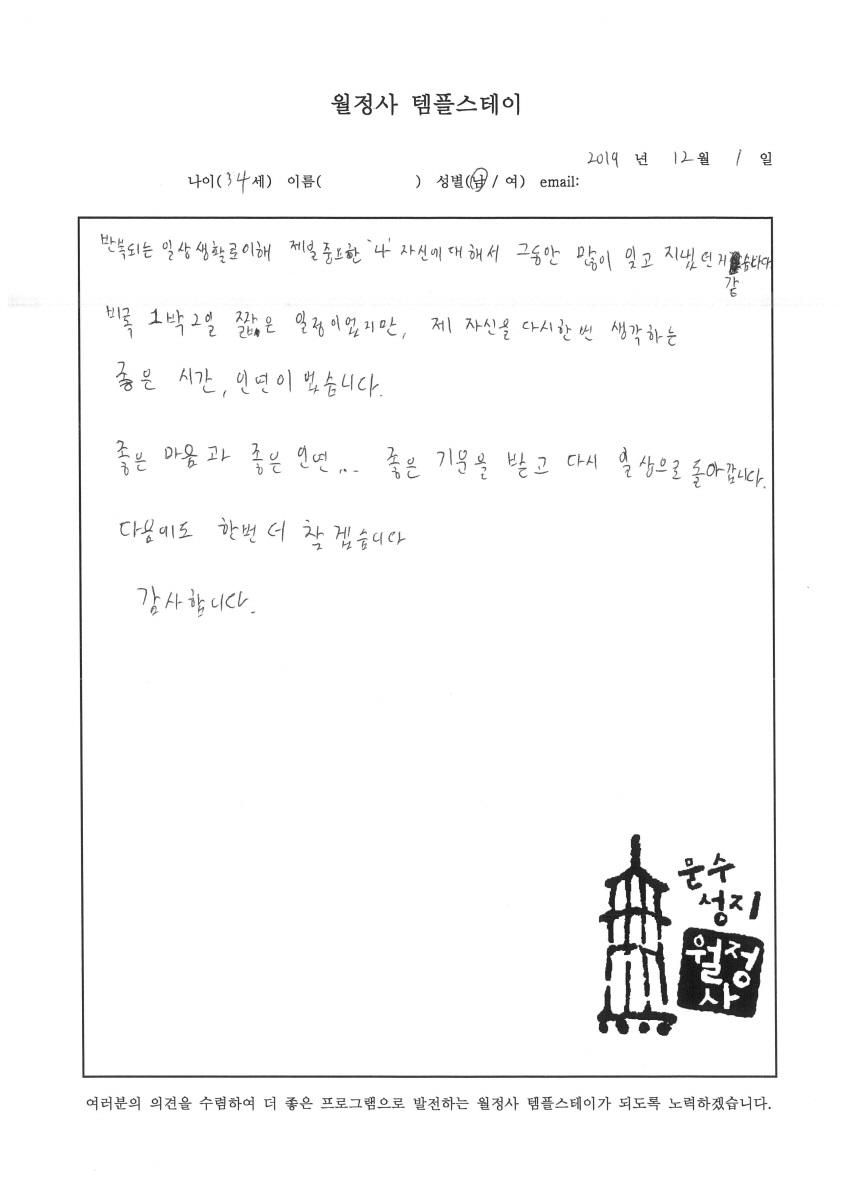 월정사 템플스테이
2019 년 12월 1 일
나이(34세) 이름( ) 성별(남/ 여) email:
반복되는 일상생활로이해 제일중요한 '나' 자신에대해서 그동안 많이 잊고 지냈던거 같습니다
비록 1박2일 짧은 일정이었지만, 제 자신을 다시한번 생각하는
좋은 시간, 인연이 었습니다.
좋은 마음과 좋은 인연... 좋은 기운을 받고 다시 일상으로 돌아갑니다.
다음에도 한번더 찾겠습니다
감사합니다.
문수
성지
월정
사
여러분의 의견을 수렴하여 더 좋은 프로그램으로 발전하는 월정사 템플스테이가 되도록 노력하겠습니다.